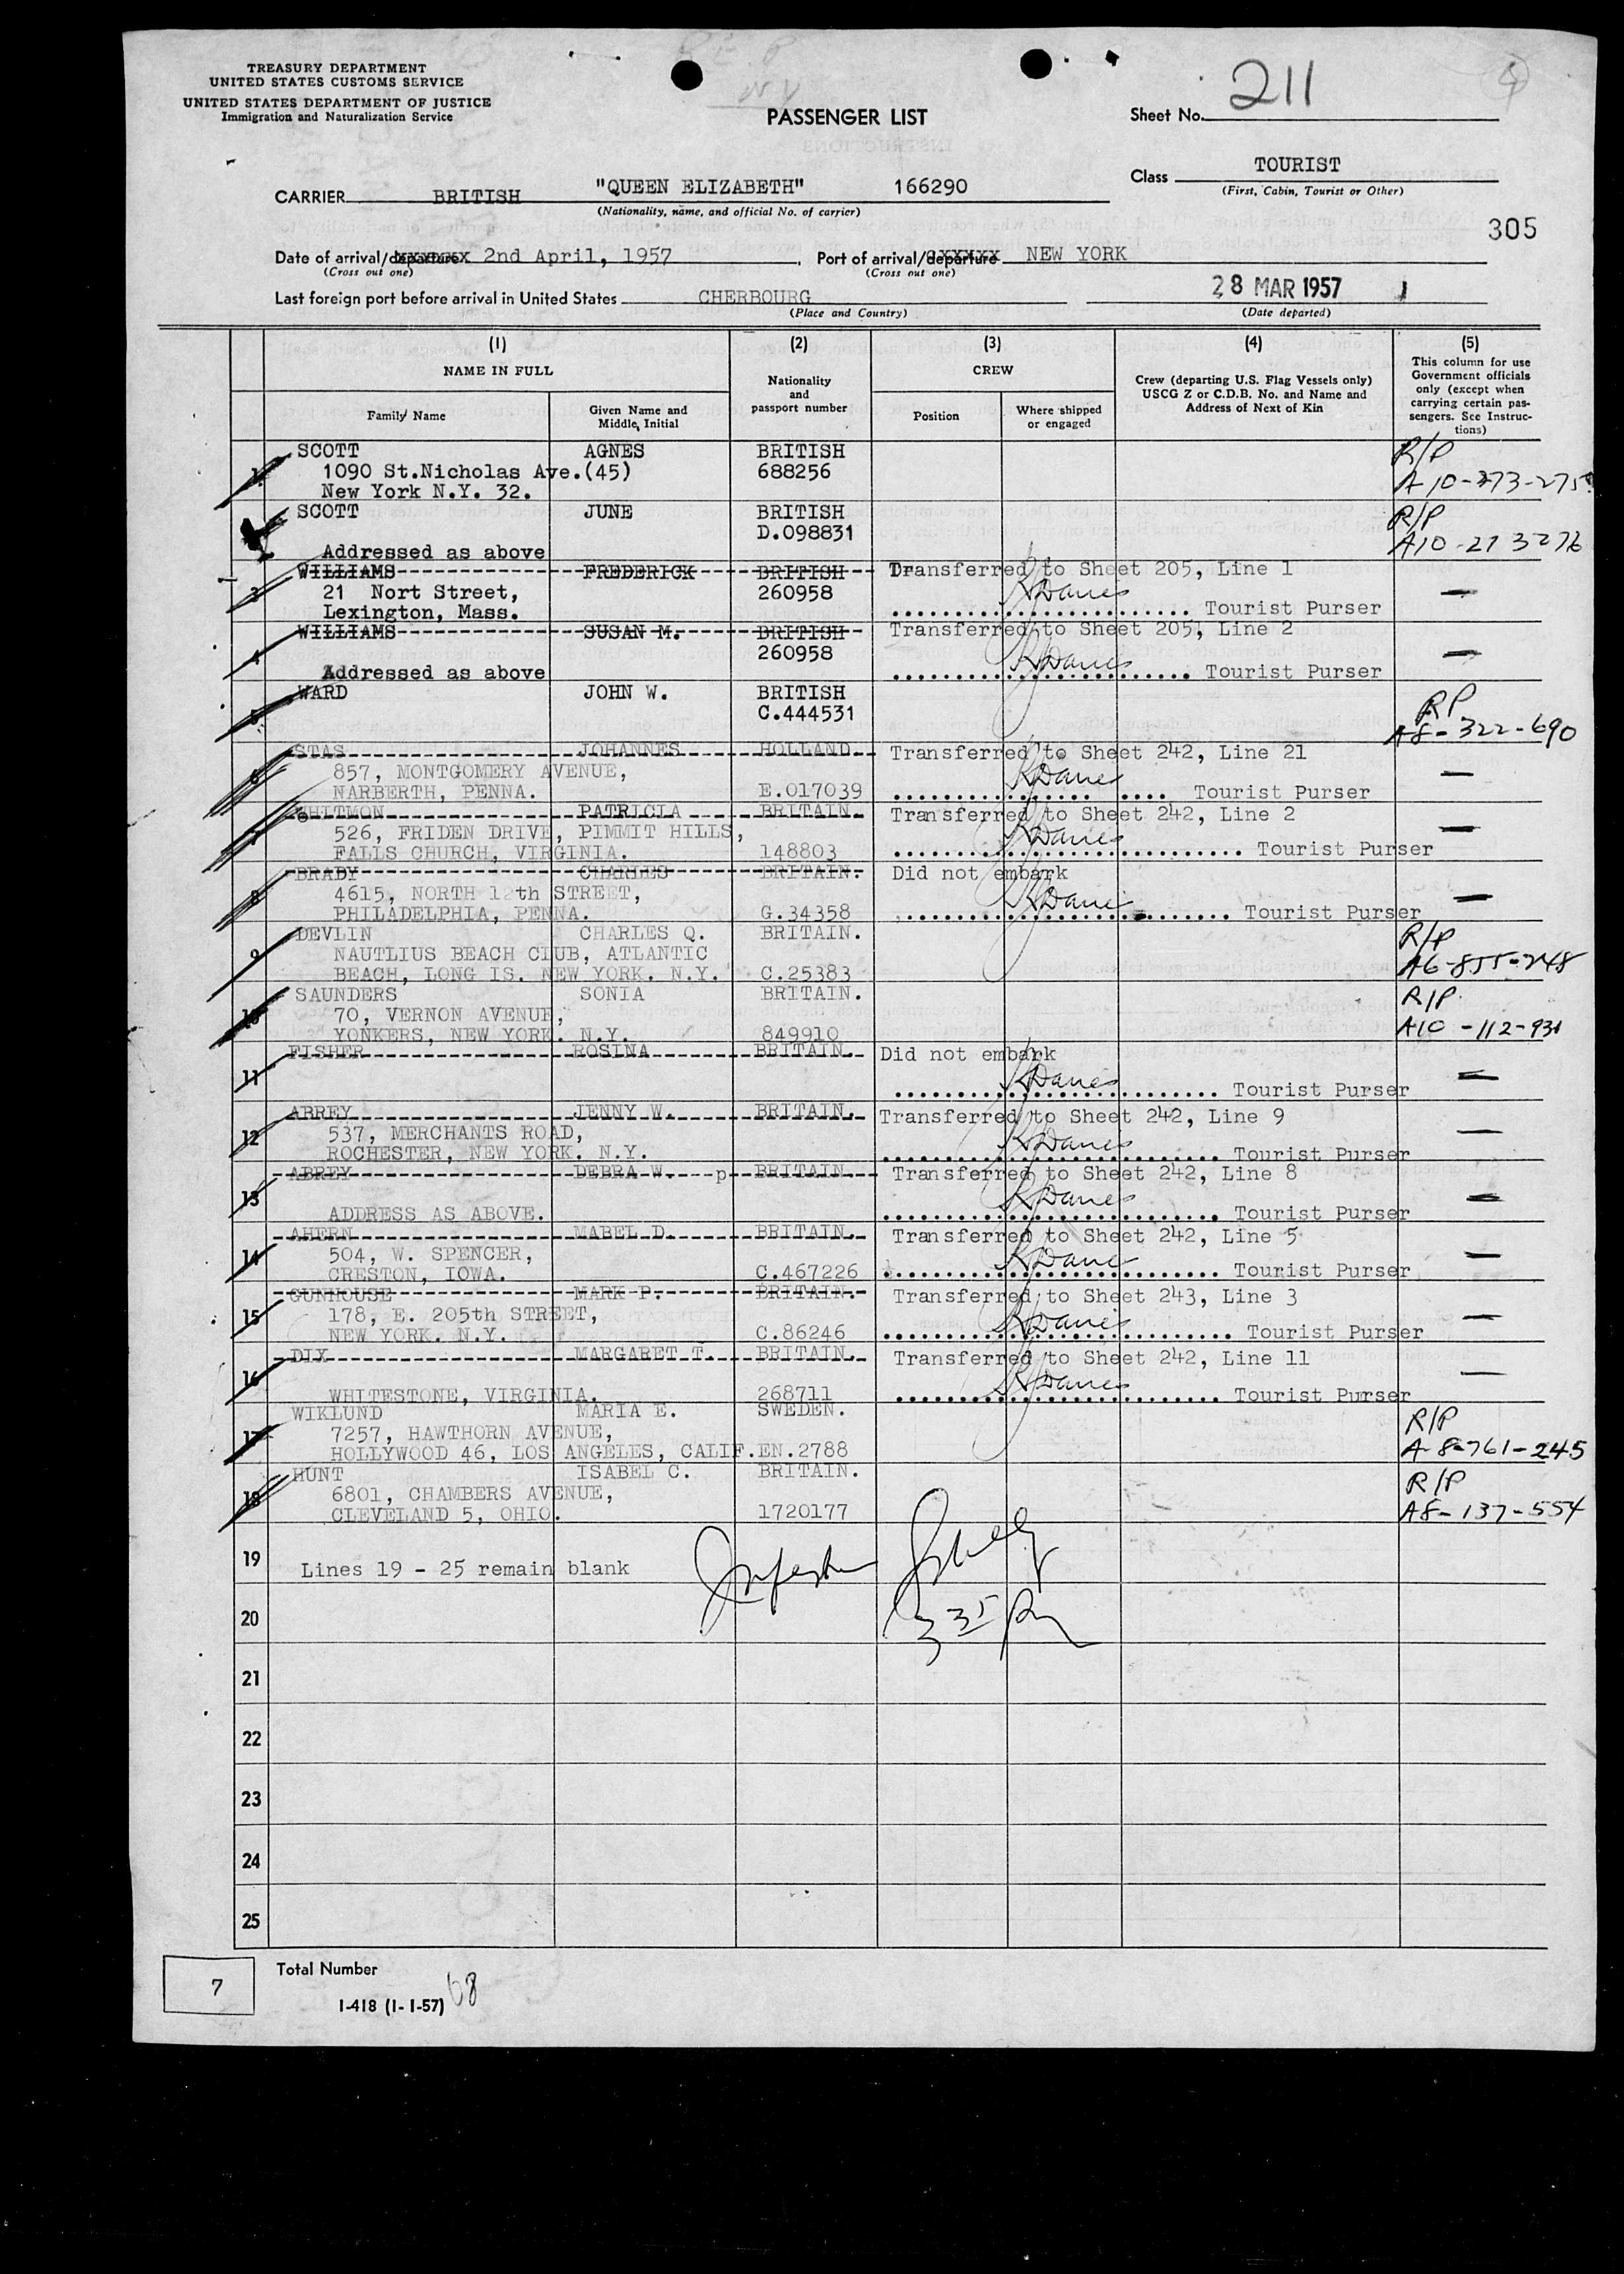 TREASURY DEPARTMENT
UNITED STATES CUSTOMS SERVICE
UNITED STATES DEPARTMENT OF JUSTICE
Immigration and Naturalization Service
PASSENGER LIST
Sheet No. 211
Class TOURIST
(First, Cabin, Tourist or Other)
CARRIER BRITISH "QUEEN ELIZABETH" 166290
(Nationality, name, and official No. of carrier)
305
Date of arrival/departure 2nd April, 1957. Port of arrival/departure NEW YORK
(Cross out one) (Cross out one)
Last foreign port before arrival in United States CHERBOURG 28 MAR 1957
(Place and Country) (Date departed)
(1) (2) (3) (4) (5)
NAME IN FULL
Nationality and passport number
CREW
Crew (departing U.S. Flag Vessels only) USCG Z or C.D.B. No. and Name and Address of Next of Kin
This column for use Government officials only (except when carrying certain passengers. See Instructions)
Family Name Given Name and Middle Initial Position Where shipped or engaged
1 SCOTT AGNES BRITISH R/P
1090 St.Nicholas Ave.(45) 688256 A10-273-275
New York N.Y. 32.
SCOTT JUNE BRITISH R/P
D.098831 A10-273276
Addressed as above
3 WILLIAMS FREDERICK BRITISH Transferred to Sheet 205, Line 1
21 Nort Street, 260958 KDavies
Lexington, Mass. Tourist Purser
4 WILLIAMS SUSAN M. BRITISH Transferred to Sheet 205, Line 2
260958 KDavies
Addressed as above Tourist Purser
5 WARD JOHN W. BRITISH RP
C.444531 A8-322-690
6 STAS JOHANNES HOLLAND Transferred to Sheet 242, Line 21
857, MONTGOMERY AVENUE,
NARBERTH, PENNA. E.017039 Tourist Purser
7 WHITMON PATRICIA BRITAIN. Transferred to Sheet 242, Line 2
526, FRIDEN DRIVE, PIMMIT HILLS,
FALLS CHURCH, VIRGINIA. 148803 Tourist Purser
8 BRADY CHARLES BRITAIN. Did not embark
4615, NORTH 12th STREET,
PHILADELPHIA, PENNA. G.34358 Tourist Purser
9 DEVLIN CHARLES Q. BRITAIN. R/P
NAUTLIUS BEACH CLUB, ATLANTIC A6-855-248
BEACH, LONG IS. NEW YORK. N.Y. C.25383
10 SAUNDERS SONIA BRITAIN. R/P
70, VERNON AVENUE, A10-112-931
YONKERS, NEW YORK. N.Y. 849910
11 FISHER ROSINA BRITAIN. Did not embark
Tourist Purser
12 ABREY JENNY W. BRITAIN. Transferred to Sheet 242, Line 9
537, MERCHANTS ROAD,
ROCHESTER, NEW YORK. N.Y. Tourist Purser
13 ABREY DEBRA W. p BRITAIN. Transferred to Sheet 242, Line 8
ADDRESS AS ABOVE. Tourist Purser
14 AHERN MABEL D. BRITAIN. Transferred to Sheet 242, Line 5
504, W. SPENCER,
CRESTON, IOWA. C.467226 Tourist Purser
15 GUNHOUSE MARK P. BRITAIN. Transferred to Sheet 243, Line 3
178, E. 205th STREET,
NEW YORK. N.Y. C.86246 Tourist Purser
16 DIX MARGARET T. BRITAIN. Transferred to Sheet 242, Line 11
WHITESTONE, VIRGINIA. 268711 Tourist Purser
17 WIKLUND MARIA E. SWEDEN. R/P
7257, HAWTHORN AVENUE, A-8-761-245
HOLLYWOOD 46, LOS ANGELES, CALIF. EN.2788
18 HUNT ISABEL C. BRITAIN. R/P
6801, CHAMBERS AVENUE, A8-137-554
CLEVELAND 5, OHIO. 1720177
19 Lines 19 - 25 remain blank
20 3 35 Pm
21
22
23
24
25
7 Total Number
I-418 (1-1-57) 68